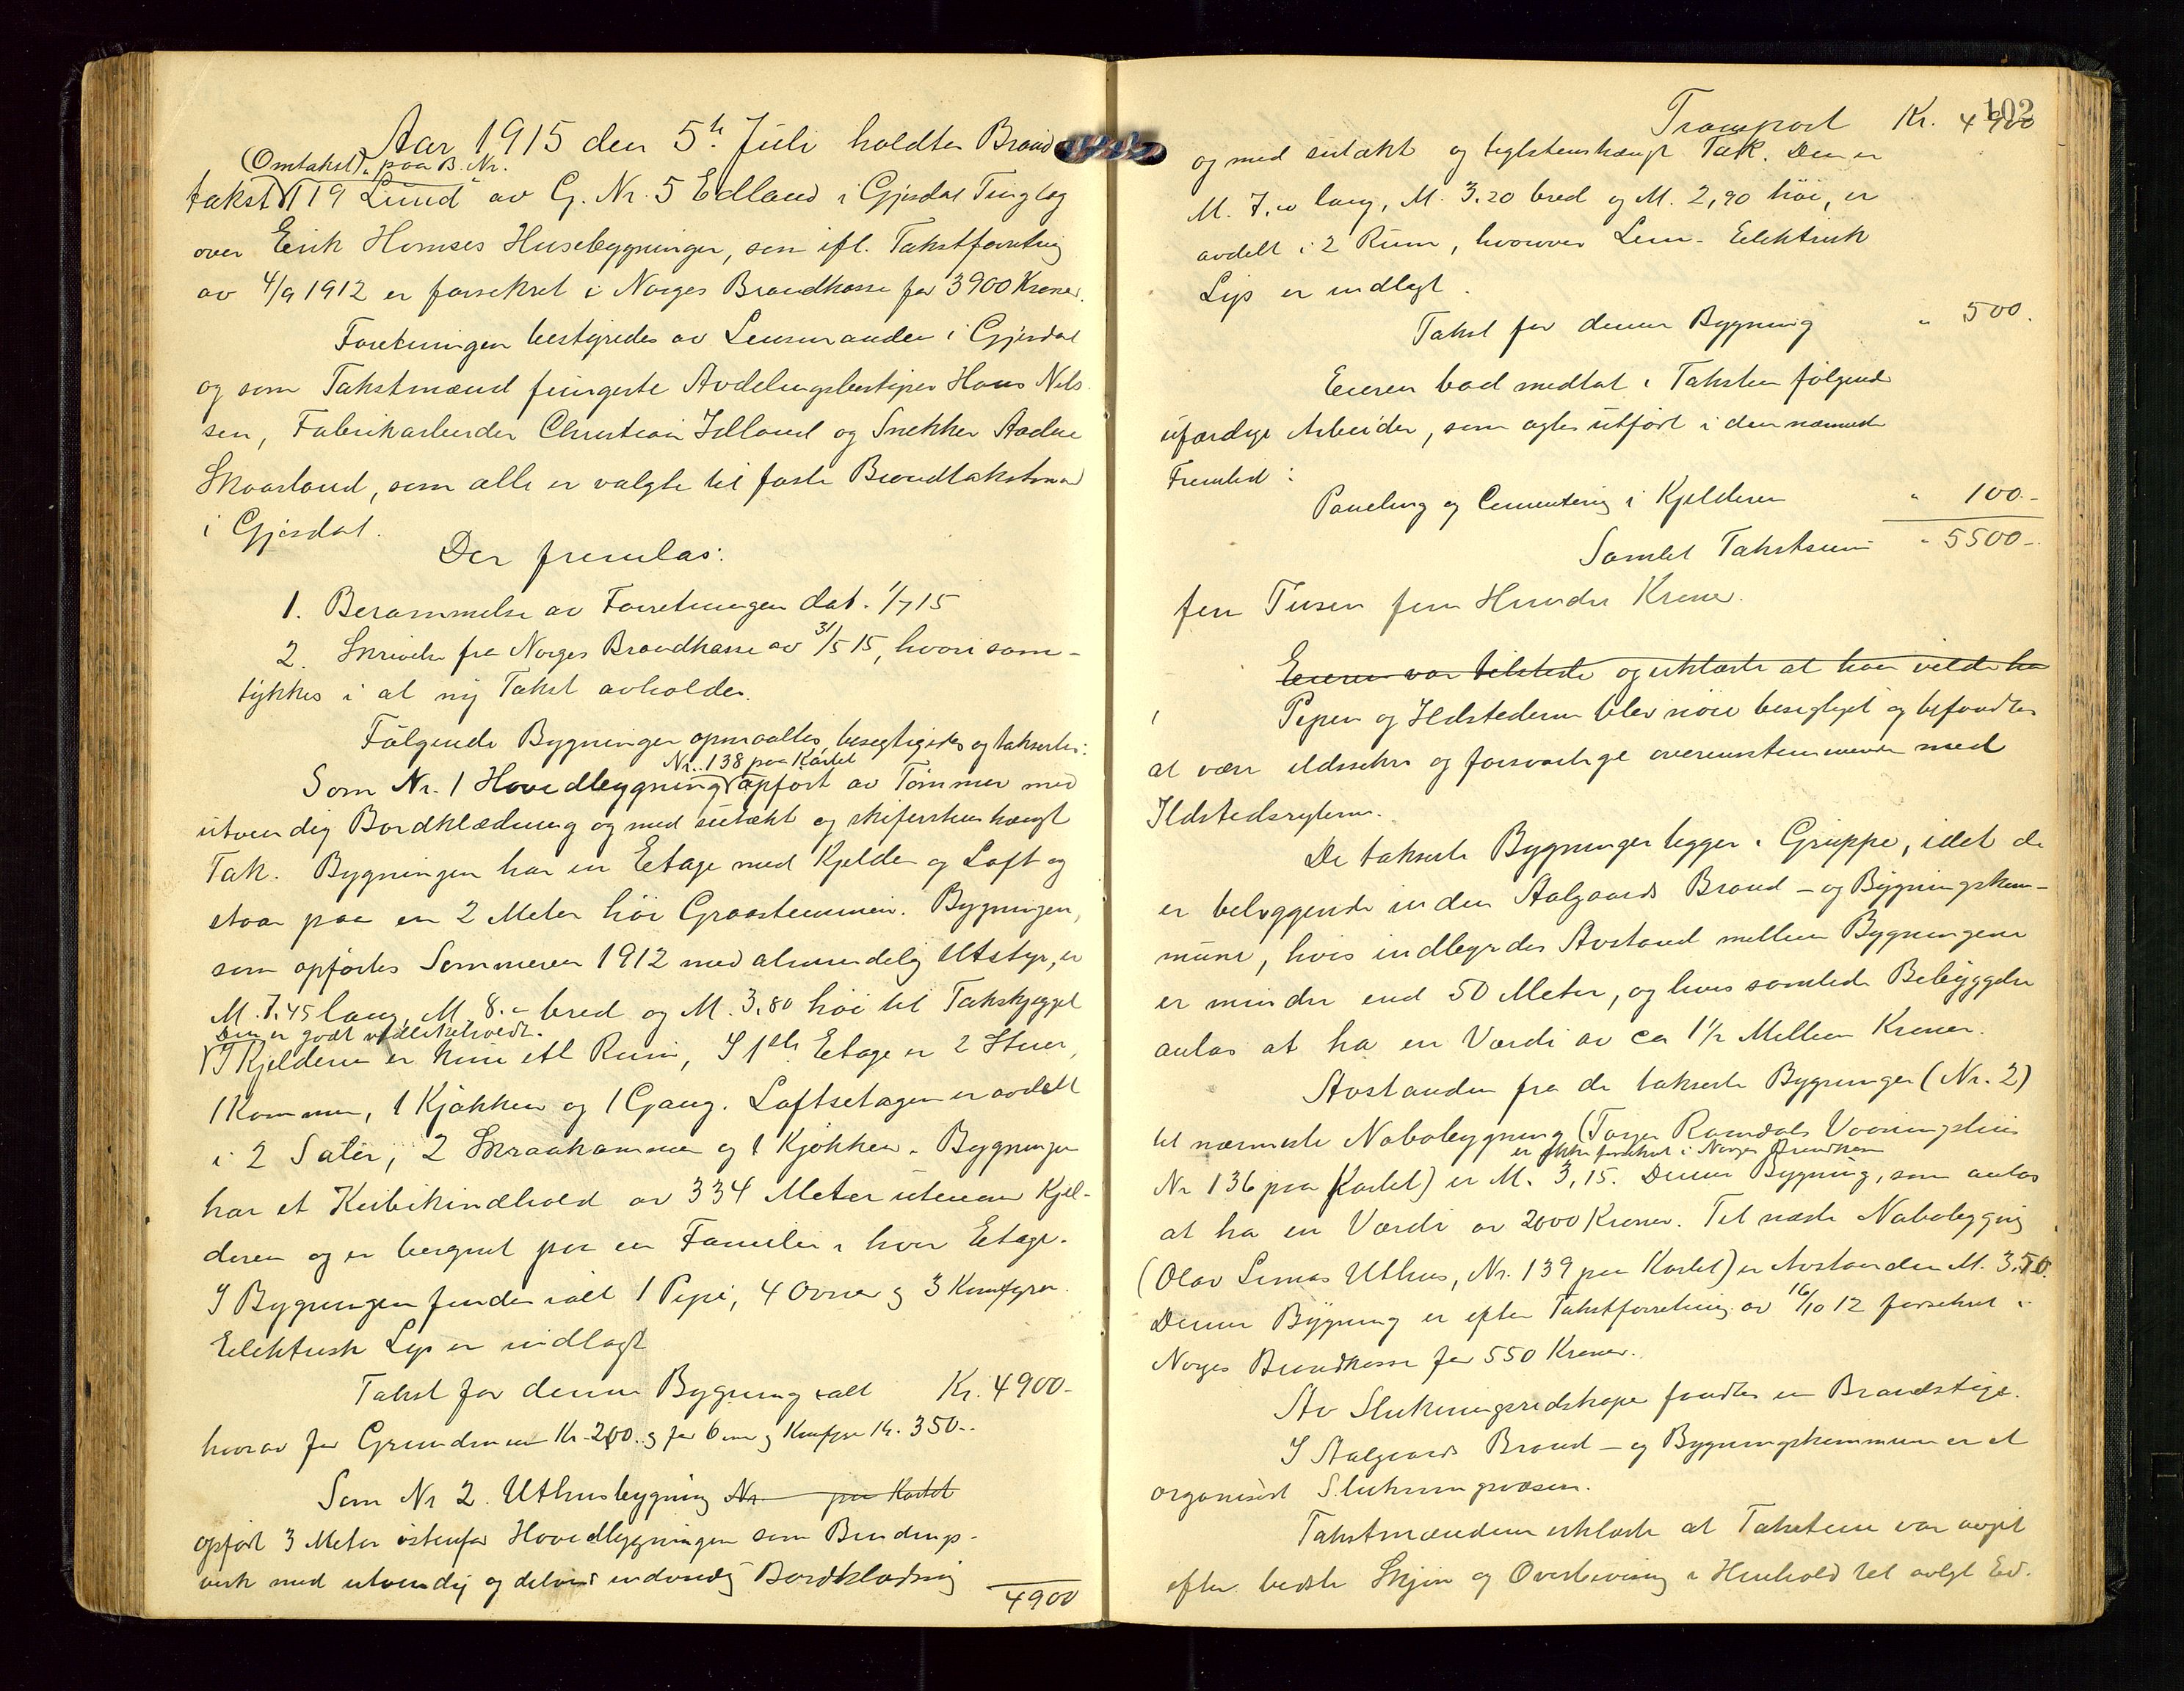 Aar 1915 den 5te Juli holdtes Brand
(Omtakst) paa B. Nr.
takst 119 "Lund" av G. Nr. 5 Edland i Gjesdal Tinglag
over Erik Homses Husebygninger, som ifl. Takstforretning
av 4/9 1912 er forsekret i Norges Brandkasse for 3900 Kroner.
Forretningen bestyredes av Lensmanden i Gjesdal
og som Takstmænd fungerte Avdelingsbestyrer Hans Nils
sen, Fabrikarbeider Christian Idland og Snekker Aadne
Skaarland, som alle er valgte til faste Brandtakstmænd
i Gjesdal.
Der fremlas:
1. Berammelse av Forretningen dat. 1/7 15
2. Skrivelse fra Norges Brandkasse av 31/5 15, hvori sam-
tykkes i at ny Takst avholdes.
Følgende Bygninger opmaaltes, besegtigedes og taksertes:
Nr. 138 paa Kartet
Som Nr. 1 Hovedbygning opført av Tømmer med
utvendig Bordklædning og med sutækt og skiferstenhængt
Tak. Bygningen har en Etage med Kjelder og Loft og
staar paa en 2 Meter høi Graastensmur. Bygningen,
som opførtes Sommeren 1912 med almindelig Utstyr, er
M. 7,45 lang, M. 8.- bred og M. 3,80 høi til Takskjegget
Den er godt vedlikeholdt.
I Kjelderen er kun ett Rum, I 1ste Etage er 2 Stuer,
1 Kammer, 1 Kjøkken og 1 Gang. Loftsetagen er avdelt
i 2 Saler, 2 Skraakammer og 1 Kjøkken. Bygningen
har et Kubikindhold av 334 Meter utenom Kjel-
deren og er beregnet paa en Familie i hver Etage.
I Bygningen findes ialt 1 Pipe, 4 Ovner og 3 Komfyrer.
Elektrisk Lys er indlagt
Takst for denne Bygning ialt Kr. 4900-
hvorav for Grundmur Kr. 200.- og for Ovne og Komfyre Kr. 350.-
Som Nr 2. Uthusbygning Nr paa Kartet
opført 3 Meter østenfor Hovedbygningen som Bindings-
verk med utvendig og delvis indvendig Bordklædning
4900
102
Transport Kr. 4900
og med sutækt og teglstenshængt Tak. Den er
M. 7.10 lang, M. 3.20 bred og M. 2,90 høi, er
avdelt i 2 Rum, hvorover Lem. Elektrisk
Lys er indlagt.
Takst for denne Bygning " 500.
Eieren bad medtat i Taksten følgende
ufærdige Arbeider, som agtes utført i den nærmeste
Fremtid:
Paneling og Cementering i Kjelderen " 100.-
Samlet Takstsum " 5500-
fem Tusen fem Hundre Kroner.
Eieren var tilstede og erklærte at han vilde ha
Pipen og Ildstederne blev nøie besigtiget og befandtes
at være ildssikre og forsvarlige overensstemmende med
Ildstedsreglerne.
De takserte Bygninger ligger i Gruppe, idet de
er beliggende inden Aalgaards Brand- og Bygningskom-
mune, hvis indbyrdes Avstand mellem Bygningene
er mindre end 50 Meter, og hvis samlede Bebyggelse
antas at ha en Værdi av ca 1½ Million Kroner.
Avstanden fra de takserte Bygninger (Nr. 2)
til nærmeste Nabobygning (Torger Ramdals Vaaningshus
er ikke forsekret i Norges Brandkasse
Nr 136 paa Kartet) er M. 3,15. Denne Bygning, som antas
at ha en Værdi av 2000 Kroner. Til næste Nabobygning
(Olav Limas Uthus, Nr. 139 paa Kartet) er Avstanden M. 3.50.
Denne Bygning er efter Takstforretning av 16/10 12 forsekret i
Norges Brandkasse for 550 Kroner.
Av Slukningsredskaper fandtes en Brandstige.
I Aalgaards Brand- og Bygningskommune er et
organisert Slukningsvæsen.
Takstmændene erklærte at Takstene var avgit
efter bedste Skjøn og Overbevisning i Henhold til avlagt Ed.